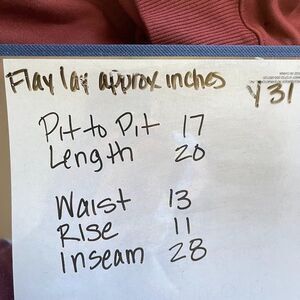 Flay lay approx inches
Y31
Pit to Pit 17
Length 20
Waist 13
Rise 11
Inseam 28